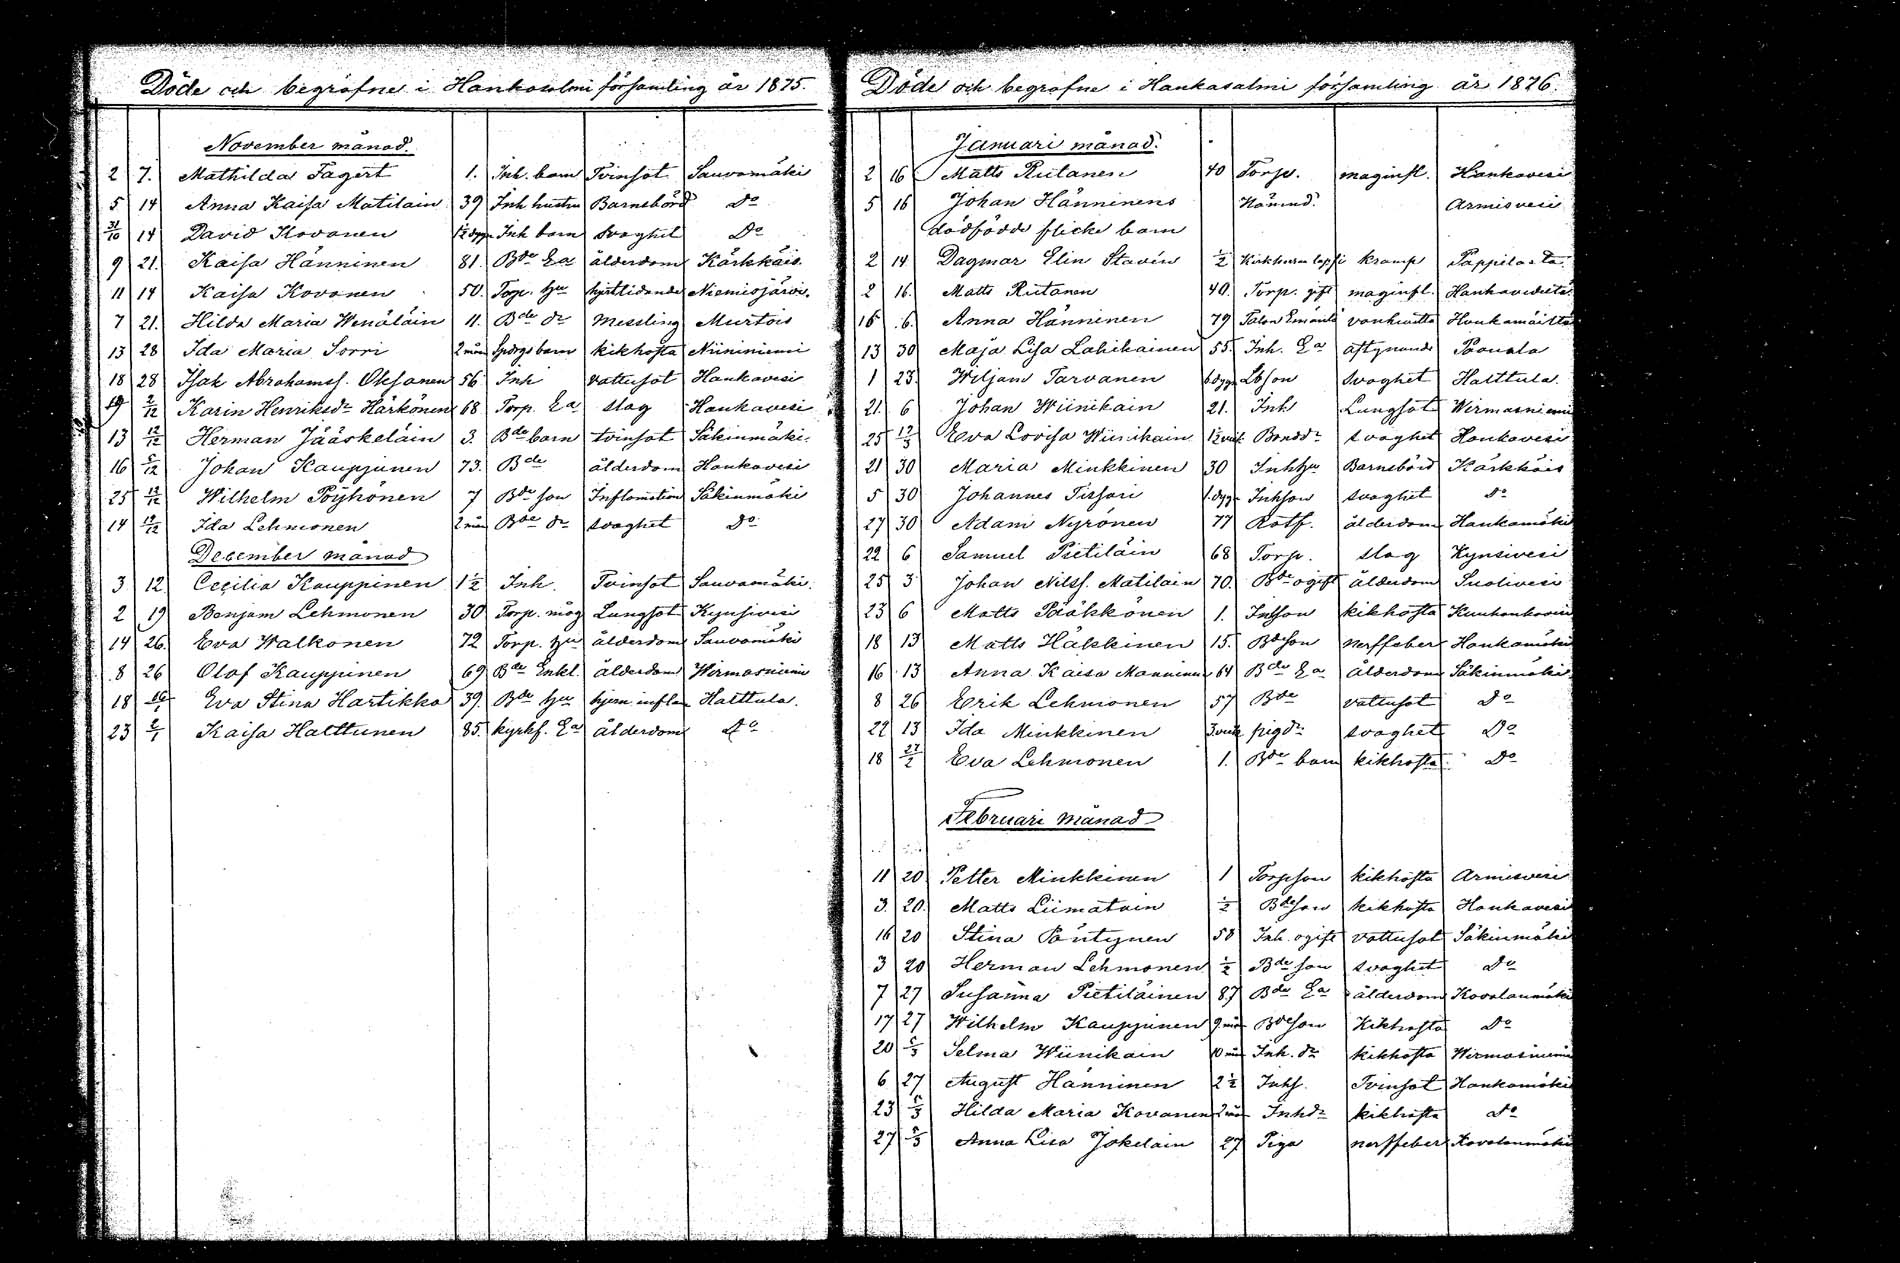 Döde och begrafne i Hankasalmi församling år 1875.
November månad.
2 7. Mathilda Fagert 1. Inh. barn Tvinsot Sauvomäki
5 14 Anna Kaisa Matilain 39 Inh hustru Barnsbörd Do
31/10 14 David Kovanen 1½ dygn Inh barn svaghet Do
9 21. Kaisa Hänninen 81. Bde Ea ålderdom Kärkkäis.
11 14 Kaisa Kovanen 50. Torp. hu Niemisjärvi.
7 21. Hilda Maria Wenäläin 11. Bde dr Messling Murtois
13 28 Ida Maria Sorri 2 mån barn kikhosta Niininiemi
18 28 Isak Abrahamss. Oksanen 56 Inh vattusot Hankavesi
19 2/12 Karin Henriksdr Härkönen 68 Torp. Ea slag Hankavesi
13 12/12 Herman Jääskeläin 3. Bde barn tvinsot Säkinmäki
16 5/12 Johan Kauppinen 73. Bde ålderdom Hankavesi
25 12/12 Wilhelm Pöyhönen 7 Bde son Inflamation Säkinmäki
14 12/12 Ida Lehmonen 2 mån Bde dr svaghet Do
December månad
3 12 Cecilia Kauppinen 1½ Inh. Tvinsot Sauvomäki.
2 19 Benjam Lehmonen 30 Torp. måg Lungsot Kynsivesi
14 26. Eva Walkonen 72 Torp. hu ålderdom Sauvomäki
8 26 Olof Kauppinen 69 Bde Enkl. ålderdom Wirmasniemi
18 Eva Stina Hartikka 39. Bde hu hjern inflam Halttula.
23 2/1 Kaisa Halttunen 85. kyrkf. Ea ålderdom Do
Döde och begrafne i Hankasalmi församling år 1876.
Januari månad.
2 16 Matts Riitanen 40 Torp. maginfl. Hankavesi
5 16 Johan Hänninens Armisvesi
dödfödde flicke barn
2 14 Dagmar Elin Stavén ½ lapsi kramp Pappilasta
2 16. Matts Riitanen 40. Torp. gift maginfl. Hankavedeltä
16 6. Anna Hänninen 79 Talon Emäntä vanhuutta Hankamäeltä
13 30 Maja Lisa Lahikainen 55. Inh. Ea aftynande Paavala
1 23. Wiljam Tarvanen 6 dygn son svaghet Halttula.
21. 6 Johan Wiinikain 21. Inh Lungsot Wirmasniemi
25 12/3 Eva Lovisa Wiinikain 1½ veck Bonddr svaghet Hankavesi
21 30 Maria Minkkinen 30 Inh hu Barnsbörd Kärkkäis
5 30 Johannes Tissari 1. dygn Inhson svaghet do
27 30 Adam Nyrönen 77 Rotf. ålderdom Hankamäki
22 6 Samuel Pietiläin 68 Torp. slag Kynsivesi
25 3 Johan Nilss. Matilain 70. Bde ogift ålderdom Suolivesi
23 6 Matts Pääkkönen 1. Inhson kikhosta Kuuhankavesi
18 13 Matts Häkkinen 15. Bdeson nerffeber Hankamäki
16 13 Anna Kaisa Manninen 64 Bde Ea ålderdom Säkinmäki
8 26 Erik Lehmonen 57 Bde vattusot do
22 13 Ida Minkkinen 3 veck pigdr svaghet Do
18 27/2 Eva Lehmonen 1. Bde barn kikhosta Do
Februari månad
11 20 Petter Minkkinen 1 Torpson kikhosta Armisvesi
3. 20. Matts Liimatain ½ Bdeson kikhosta Hankavesi
16 20 Stina Pöntynen 58 Inh. ogift vattusot Säkinmäki
3 20 Herman Lehmonen ½ Bde son svaghet do
7 27 Susanna Pietiläinen 87 Bde Ea ålderdom Kovalanmäki
17 27 Wilhelm Kauppinen 9 mån Bdeson Kikhosta do
20 5/3 Selma Wiinikain 10 mån Inh. dr kikhosta Wirmasniemi
6 27 August Hänninen 2½ Inhs. Tvinsot Hankamäki
23 5/3 Hilda Maria Kovanen 2 mån Inhdr kikhosta do
27 5/3 Anna Lisa Jokelain 27 Piga nerffeber Kovalanmäki